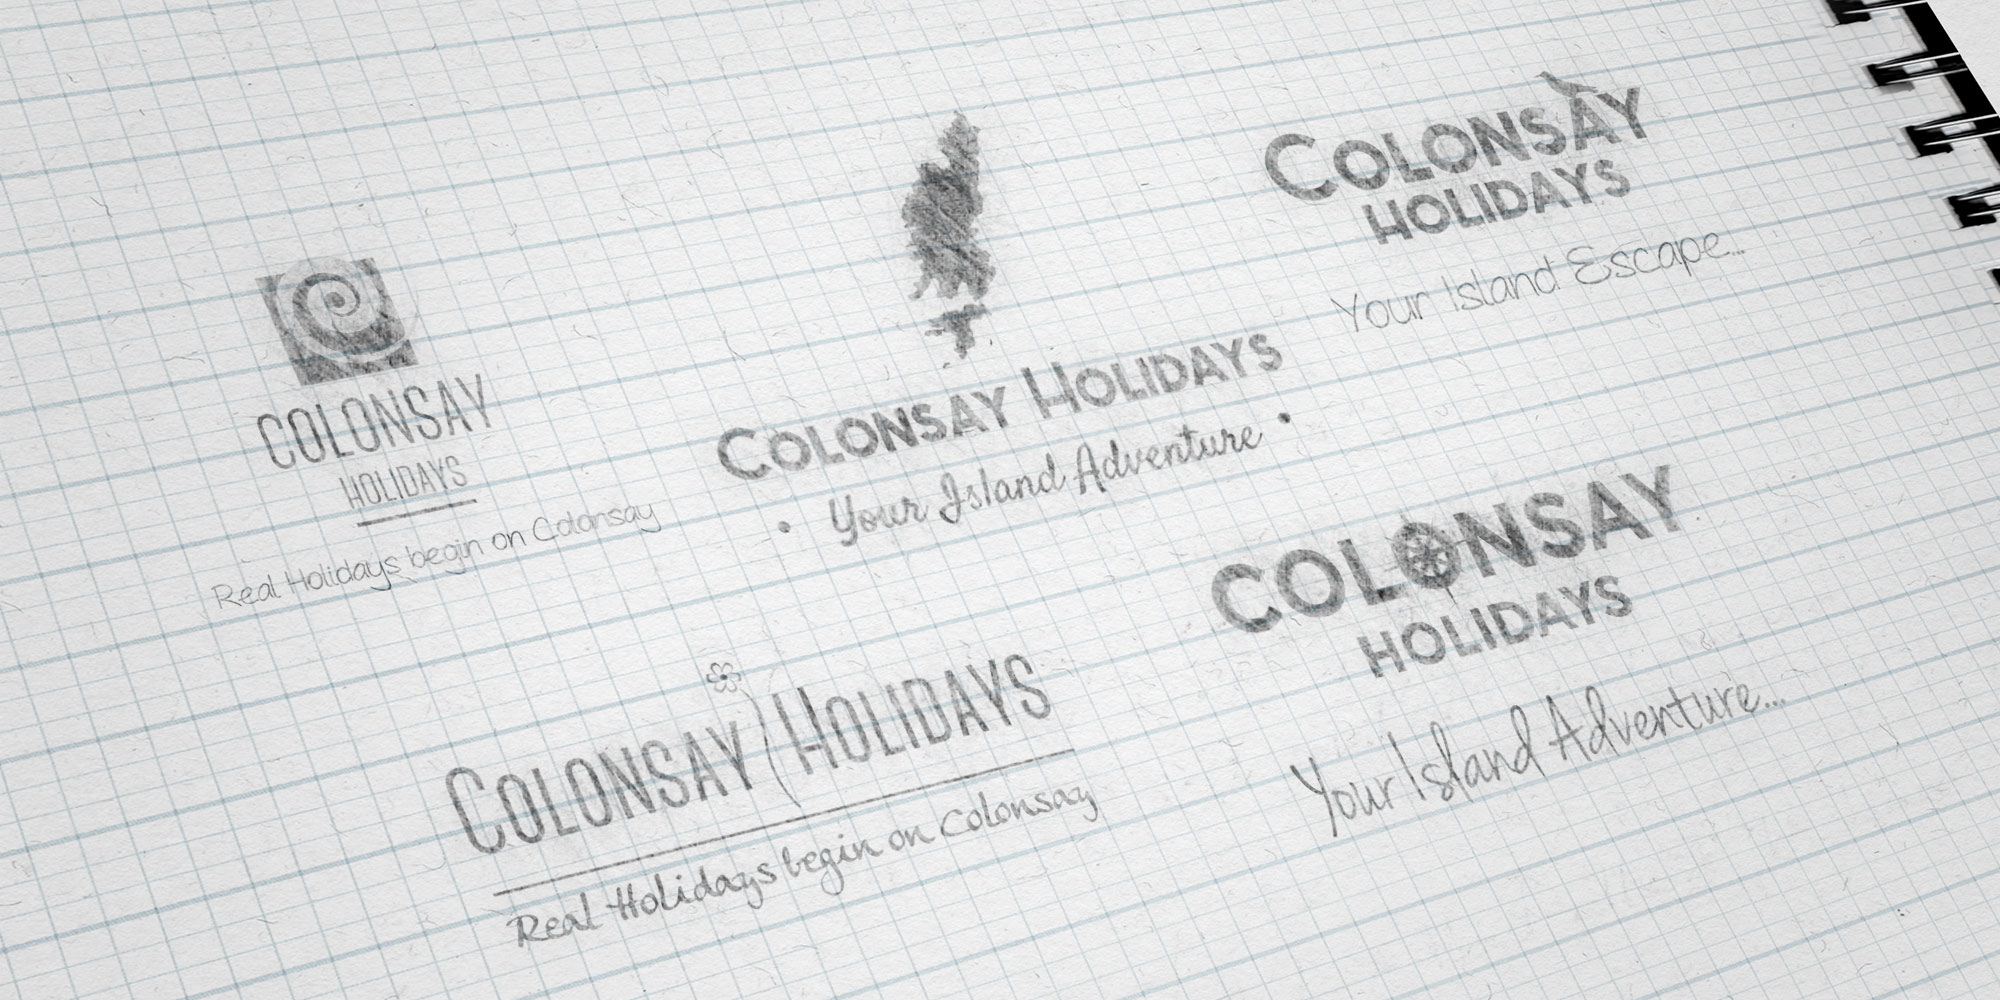 COLONSAY
HOLIDAYS
Real Holidays begin on Colonsay
COLONSAY HOLIDAYS
• Your Island Adventure •
COLONSAY
HOLIDAYS
Your Island Escape...
COLONSAY HOLIDAYS
Real Holidays begin on Colonsay
COLONSAY
HOLIDAYS
Your Island Adventure...